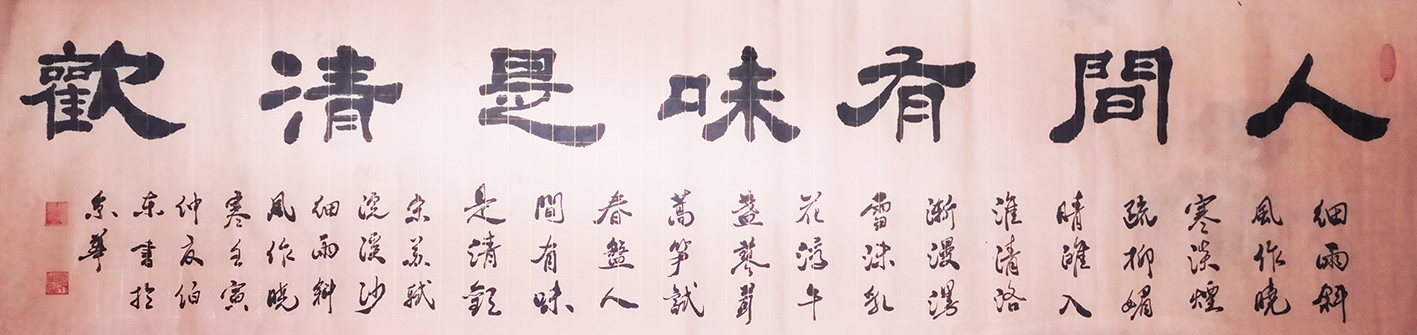 人間有味是清歡
細雨斜
風作曉
寒淡煙
疏柳媚
晴灘入
淮清洛
漸漫漫
雪沫乳
花浮午
盞蓼茸
蒿筍試
春盤人
間有味
是清歡
宋蘇軾
浣溪沙
細雨斜
風作曉
寒壬寅
仲夏伯
東書於
京華